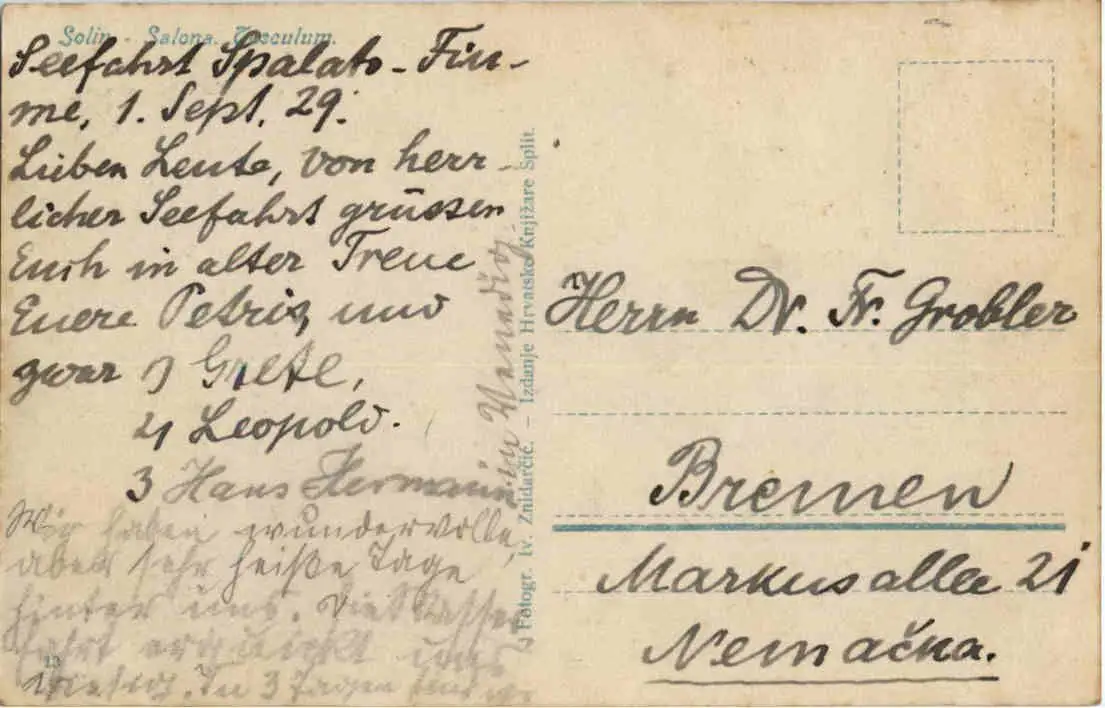 Solin - Salona. Tusculum.
Seefahrt Spalato - Fiu-
me, 1. Sept. 29.
Lieben Leute, von herr-
licher Seefahrt grüssen
Euch in alter Treue
Euere Petris, und
zwar 1) Grete,
2) Leopold.
3 Hans Hermann
Wir haben wundervolle,
aber sehr heiße Tage
hinter uns. Die Wasser
fahrt erquickt uns
riesig. In 3 Tagen sind wir
in Venedig.
Fotogr. Iv. Znidarčić. - Izdanje Hrvatske Knjižare Split.
13
Herrn Dr. Fr. Grobler
Bremen
Markusallee 21
Nemačka.